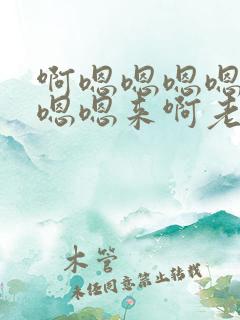 啊嗯嗯嗯嗯
嗯嗯来啊老
木管
未经同意禁止转载